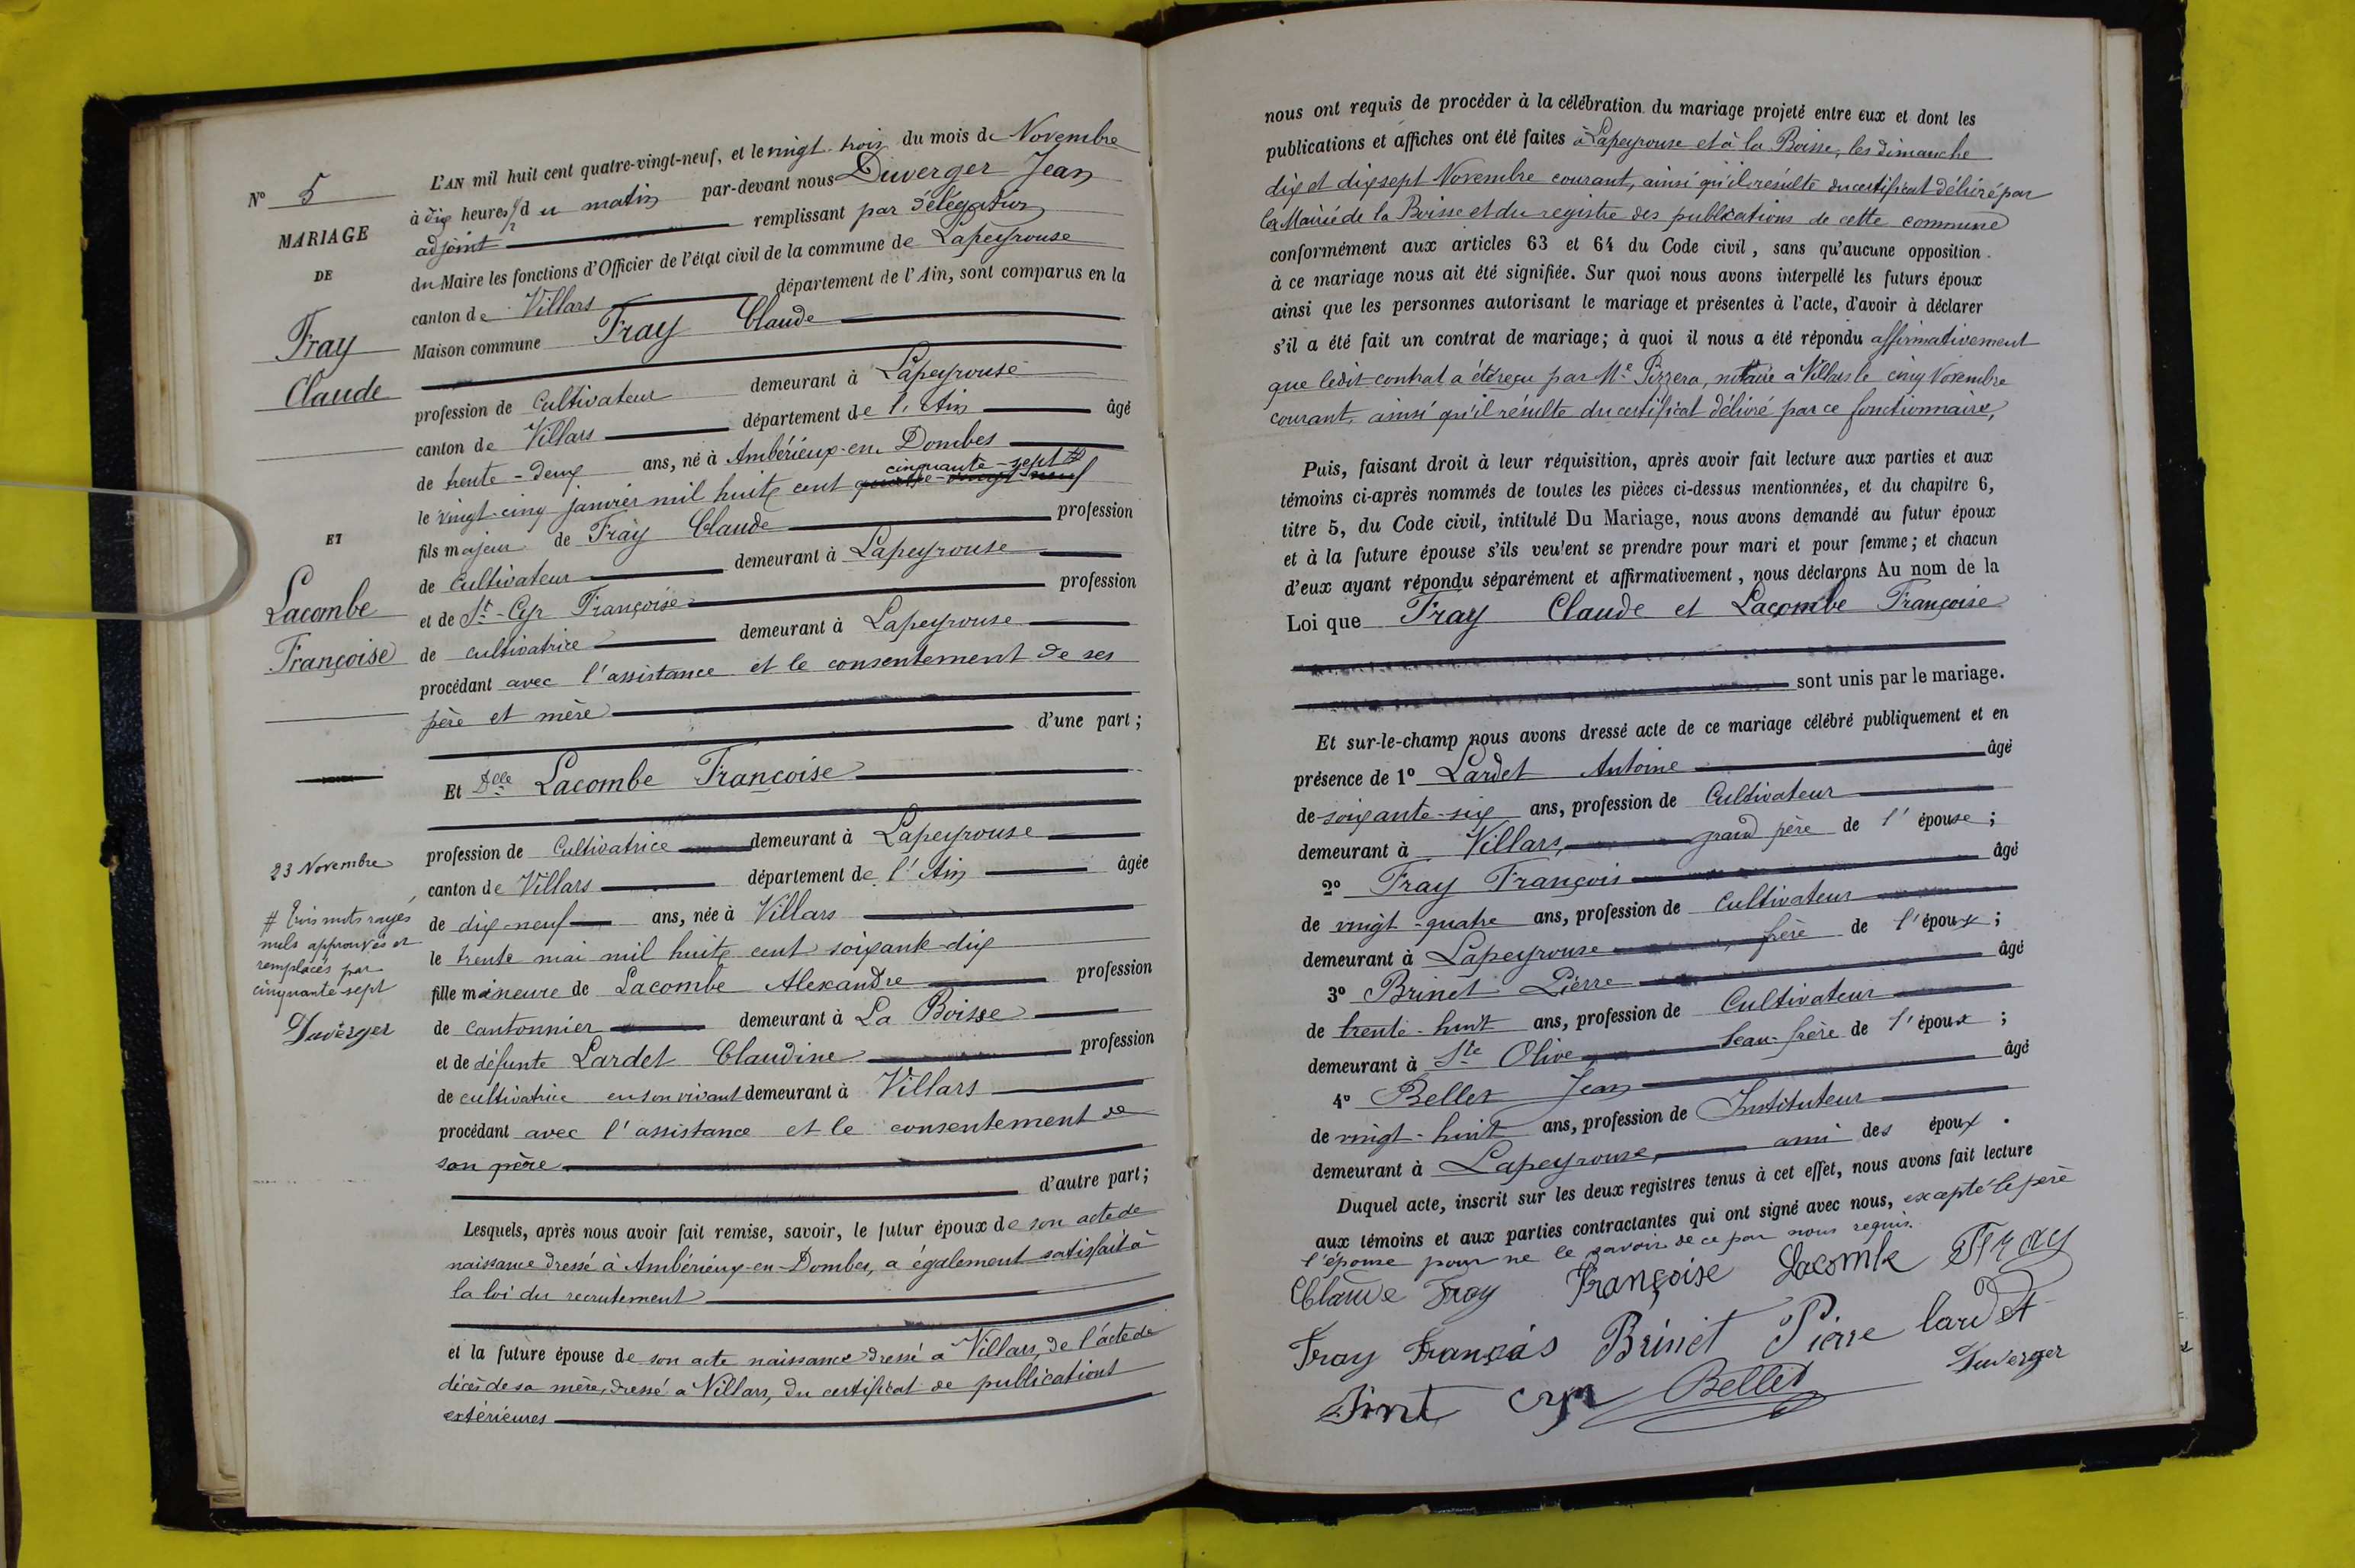 N° 5
MARIAGE
DE
Fray
Claude
ET
Lacombe
Françoise
23 Novembre
# Trois mots rayés
nuls approuvés et
remplacés par
cinquante-sept
Duverger
L'AN mil huit cent quatre-vingt-neuf, et le vingt-trois du mois de Novembre
à dix heures 1/2 du matin par-devant nous Duverger Jean
adjoint remplissant par délégation
du Maire les fonctions d'Officier de l'état civil de la commune de Lapeyrouse
canton de Villars département de l'Ain, sont comparus en la
Maison commune Fray Claude
profession de Cultivateur demeurant à Lapeyrouse
canton de Villars département de l'Ain âgé
de trente-deux ans, né à Ambérieux-en-Dombes
cinquante-sept #
le vingt-cinq janvier mil huit cent quatre-vingt-neuf
fils majeur de Fray Claude profession
de cultivateur demeurant à Lapeyrouse
et de St-Cyr Françoise profession
de cultivatrice demeurant à Lapeyrouse
procédant avec l'assistance et le consentement de ses
père et mère
d'une part;
Et Dlle Lacombe Françoise
profession de Cultivatrice demeurant à Lapeyrouse
canton de Villars département de l'Ain âgée
de dix-neuf ans, née à Villars
le trente mai mil huit cent soixante-dix
fille mineure de Lacombe Alexandre profession
de cantonnier demeurant à La Boisse
et de défunte Lardet Claudine profession
de cultivatrice en son vivant demeurant à Villars
procédant avec l'assistance et le consentement de
son père
d'autre part;
Lesquels, après nous avoir fait remise, savoir, le futur époux de son acte de
naissance dressé à Ambérieux-en-Dombes, a également satisfait à
la loi du recrutement
et la future épouse de son acte naissance dressé à Villars, de l'acte de
décès de sa mère, dressé a Villars, du certificat de publications
extérieures
nous ont requis de procéder à la célébration du mariage projeté entre eux et dont les
publications et affiches ont été faites à Lapeyrouse et à la Boisse, les dimanche
dix et dix sept Novembre courant, ainsi qu'il résulte du certificat délivré par
la Mairie de la Boisse et du registre des publications de cette commune
conformément aux articles 63 et 64 du Code civil, sans qu'aucune opposition
à ce mariage nous ait été signifiée. Sur quoi nous avons interpellé les futurs époux
ainsi que les personnes autorisant le mariage et présentes à l'acte, d'avoir à déclarer
s'il a été fait un contrat de mariage; à quoi il nous a été répondu affirmativement
que ledit contrat a été reçu par Me Pizzera, notaire a Villars le cinq Novembre
courant, ainsi qu'il résulte du certificat délivré par ce fonctionnaire,
Puis, faisant droit à leur réquisition, après avoir fait lecture aux parties et aux
témoins ci-après nommés de toutes les pièces ci-dessus mentionnées, et du chapitre 6,
titre 5, du Code civil, intitulé Du Mariage, nous avons demandé au futur époux
et à la future épouse s'ils veulent se prendre pour mari et pour femme; et chacun
d'eux ayant répondu séparément et affirmativement, nous déclarons Au nom de la
Loi que Fray Claude et Lacombe Françoise
sont unis par le mariage.
Et sur-le-champ nous avons dressé acte de ce mariage célébré publiquement et en
présence de 1° Lardet Antoine âgé
de soixante-six ans, profession de Cultivateur
demeurant à Villars, grand père de l'épouse;
2° Fray François âgé
de vingt-quatre ans, profession de Cultivateur
demeurant à Lapeyrouse, frère de l'époux;
3° Brinet Pierre âgé
de trente-huit ans, profession de Cultivateur
demeurant à Ste Olive, beau-frère de l'époux;
4° Bellet Jean âgé
de vingt-huit ans, profession de Instituteur
demeurant à Lapeyrouse, ami des époux.
Duquel acte, inscrit sur les deux registres tenus à cet effet, nous avons fait lecture
aux témoins et aux parties contractantes qui ont signé avec nous, excepté le père
l'épouse pour ne le savoir de ce par nous requis.
Claude Fray Françoise Lacombe Fray
Fray François Brinet Pierre lardet
Sint cyr Bellet Duverger